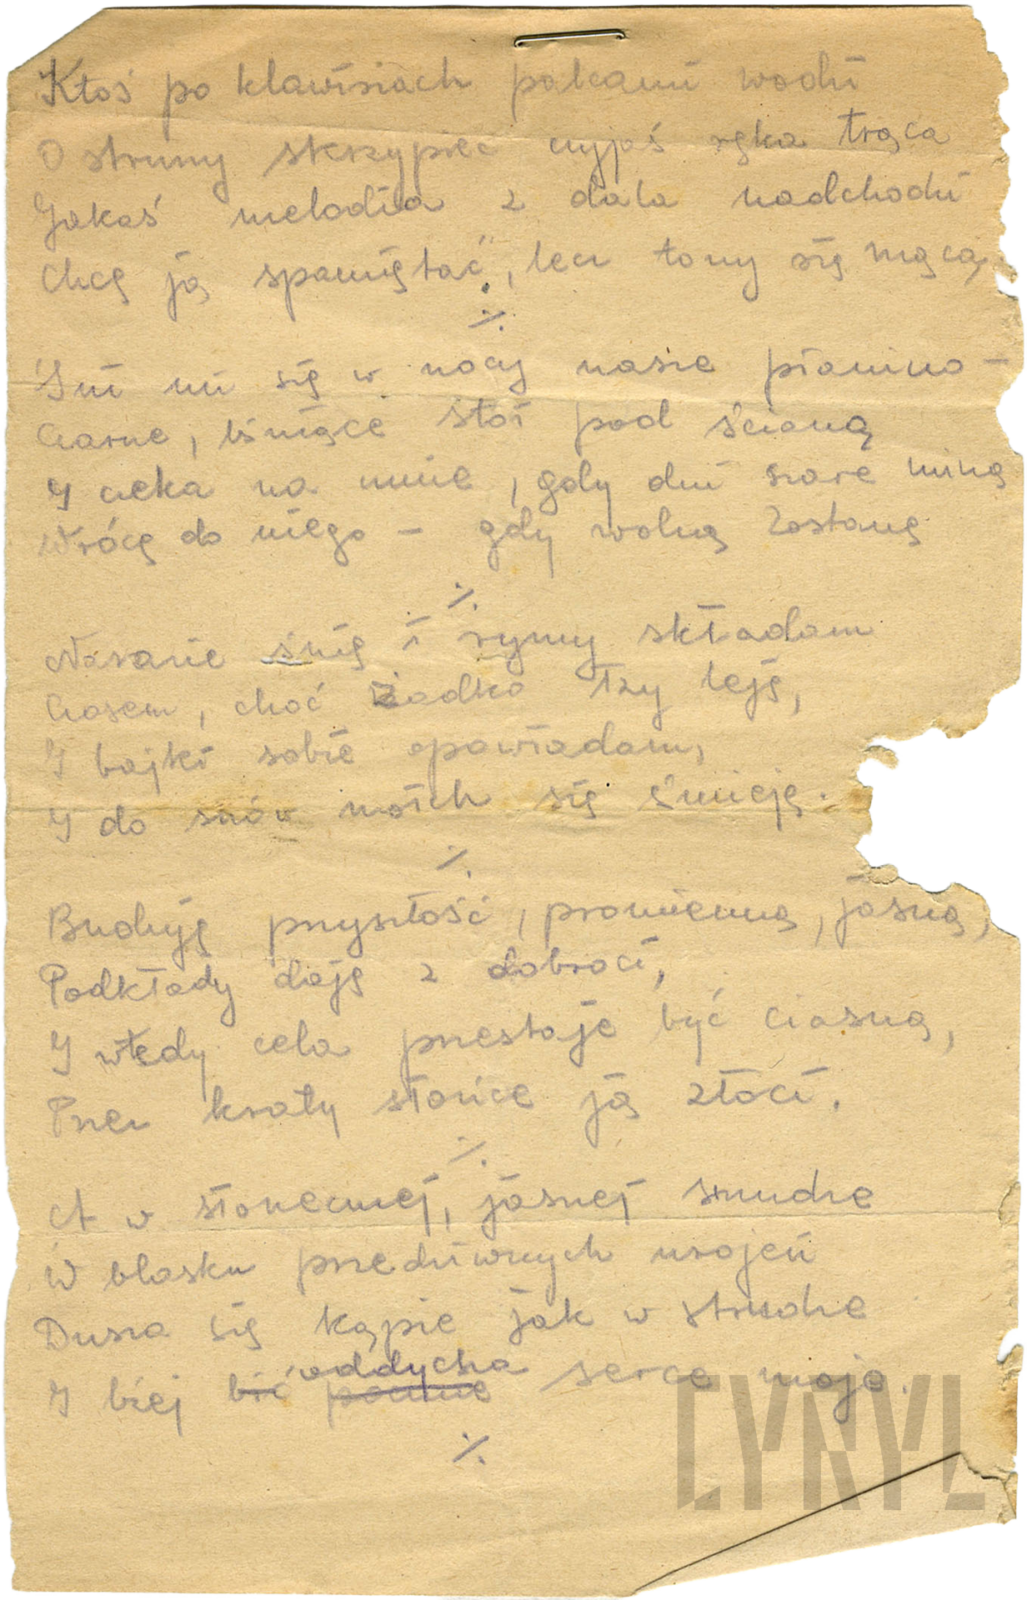 Ktoś po klawiszach palcami wodzi
O struny skrzypiec czyjaś ręka trąca
Jakaś melodia z dala nadchodzi
Chcę ją spamiętać, lecz tony się mącą
./.
Śni mi się w nocy nasze pianino –
Czarne, lśniące stoi pod ścianą
I czeka na mnie, gdy dni szare miną
Wrócę do niego – gdy wolną zostanę
./.
Narazie śnię i rymy składam
Czasem, choć żadko łzy leję,
I bajki sobie opowiadam,
I do snów moich się śmieję.
./.
Buduję przyszłość, promienną, jasną,
Podkłady daję z dobroci,
I wtedy cela przestaje być ciasną,
Przez kraty słońce ją złoci.
./.
A w słonecznej, jasnej smudze
W blasku przedziwnych urojeń
Dusza się kąpie jak w strudze
I lżej bić oddycha serce moje.
./.
LYNYL